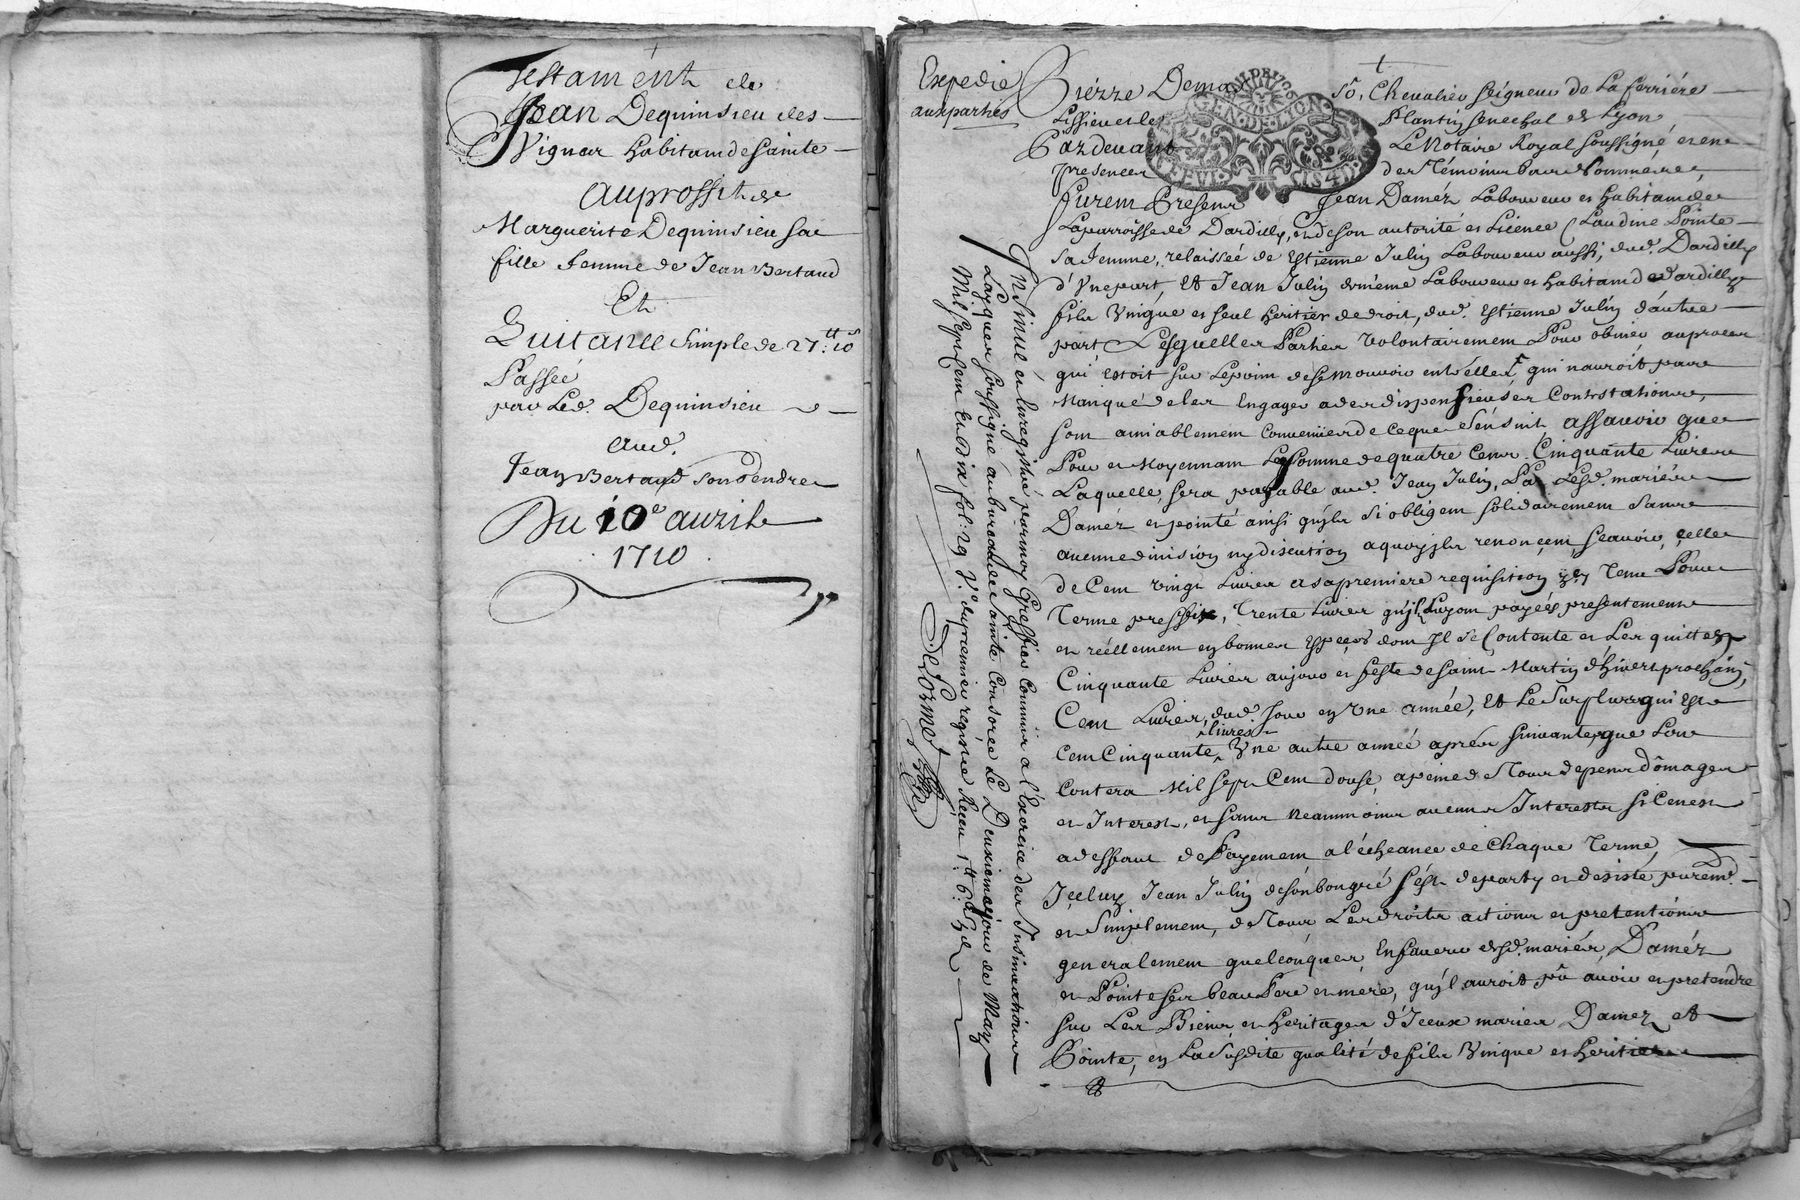 Testament de
Jean Dequinsieu des
Vignes habitam de sainte
Auproffit de
Marguerite Dequinsieu sa
fille femme de Jean Bertaud
Et
Quitance simple de 27tt 10s
Passée
par Led. Dequinsieu
Aud.
Jean Bertaud son Gendre
Du 10e avril
1710
Expedié
aux parties
Pierre Demas so, Chevalier seigneur de La ferriére
Lissieu et le Plantin senechal de Lyon
Pardevant Le Notaire Royal soussigné, et en
presence des Témoins bas Nommés,
furent Present Jean Daméz Laboureur et habitam de
La parroisse de Dardilly, et de son autorité et Licence Claudine Pointe
sa femme, relaissée de Estienne Julin Laboureur aussi, dud. Dardilly
d'Vne part, Et Jean Julin demême Laboureur et habitam de dardilly
fils Vnique et seul heritier de droit, dud. Estienne Julin d'autre
part Lesquelles Parties Volontairement Pour obvier au proces
qui estoit sur Le point de se mouvoir entre élles qui n'auroit pas
Manqué de les Engager a des dispenses et Contestations,
sont amiablement Convenües de ce que s'ensuit, assavoir que
Pour et Moyennam La somme de quatre Cens Cinquante Livres
Laquelle, sera payable aud. Jean Julin, Par Lesd. mariés
Daméz et pointe ainsi qu'jls s'i obligent solidairement sans
aucune division ny discution a quoy jls renonçent, sçavoir, çelle
de Cent vingt Livres a sa premiere requisition Terme Pour
Terme preffix, Trente Livres qu'jls Luy ont payées presentement
et réellement en bonnes Espeçes dont Jl se Contente et Les quitte
Cinquante Livres au jour et feste de saint Martin d'hiver prochain,
Cent Livres, dud. Jour en Vne année, Et Le Surplus qui Est
livres
Cent Cinquante Vne autre année aprés suivante que L'on
Contera Mil sept Cent douse, a peine de Tous depens dômages
et Interest, et sans Neanmoins aucuns Interests si Ce n'est
a deffaut de Payement a l'écheance de Chaque Terme,
Jçeluy Jean Julin de son bon gré s'est departy et desisté purem.
et Simplement, de Tous Les droits actions et pretentions
generalement quelconques, En faveur desd. mariés, Daméz
et Pointe ses beau Pere et mere, qu'jl auroit pû avoir et pretendre
sur Les Biens et heritages d'Jceux mariés Daméz et
Pointe, en La susdite qualité de fils Vnique et heritier
Insinué et Enregistré par moy Greffier Commis a l'Exercice des Insinuations
Laÿques soussigné au bureau de sainte Consorçe Le Deuxieme jour de May
Mil sept Cent Et dix fol: 29 Vo du premier registre Receu 1tt 6s
Delorme